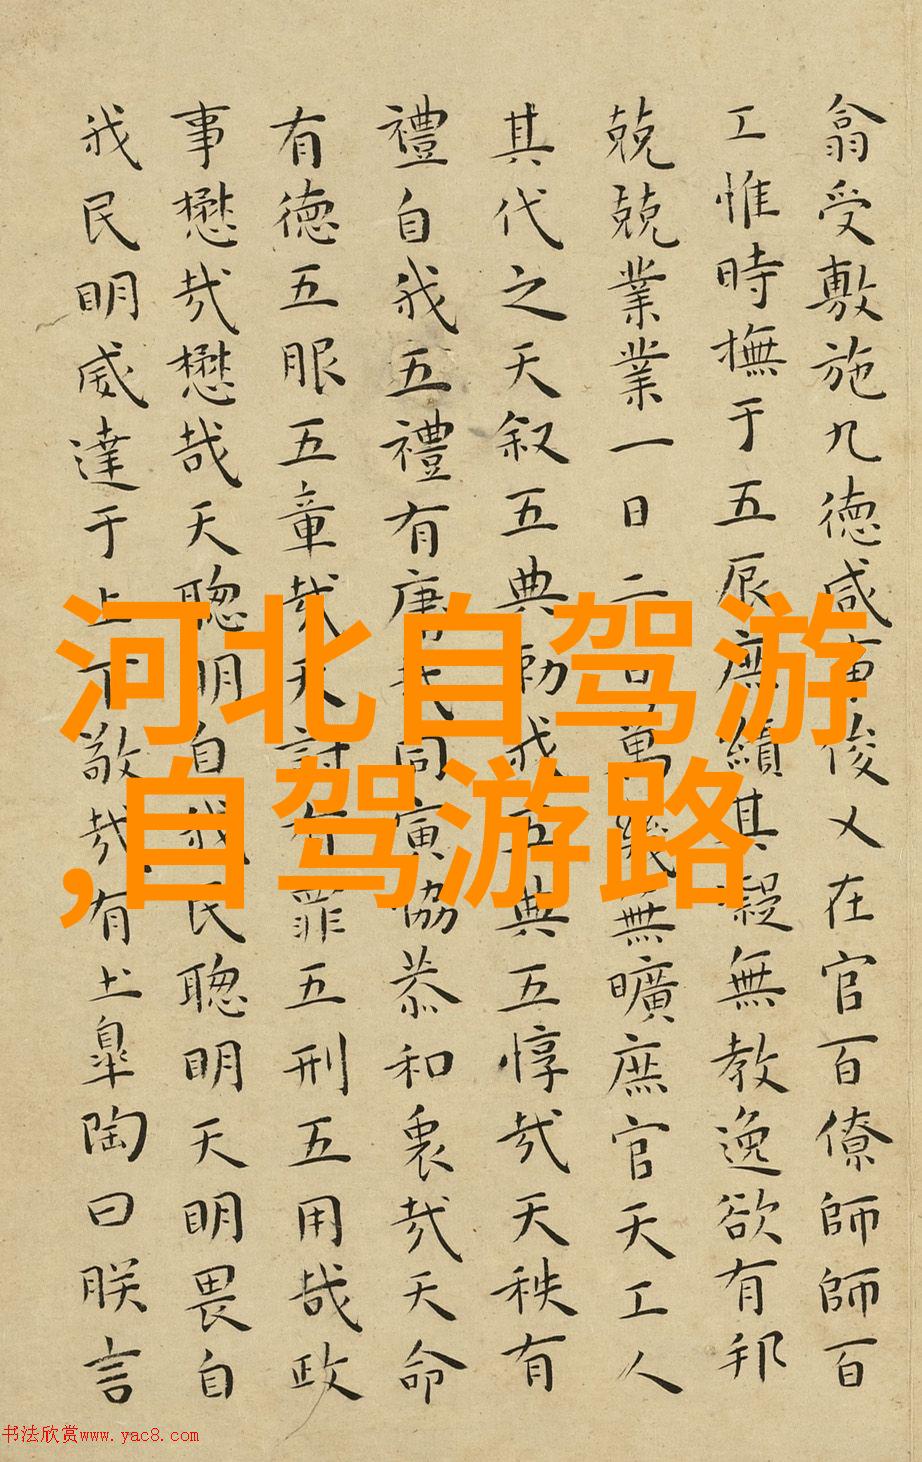 翕受敷施九德咸事俊乂在官百僚師師百
工惟時撫于五辰庶績其凝無教逸欲有邦
兢兢業業一日二日萬幾無曠庶官天工人
其代之天叙五典勅我五典五惇哉天秩有
禮自我五禮有庸哉同寅協恭和衷哉天命
有德五服五章哉天討有罪五刑五用哉政
事懋哉懋哉天聰明自我民聰明天明畏自
我民明威達于上下敬哉有土皐陶曰朕言
河北自驾游
,自驾游路
书法欣赏www.yac8.com